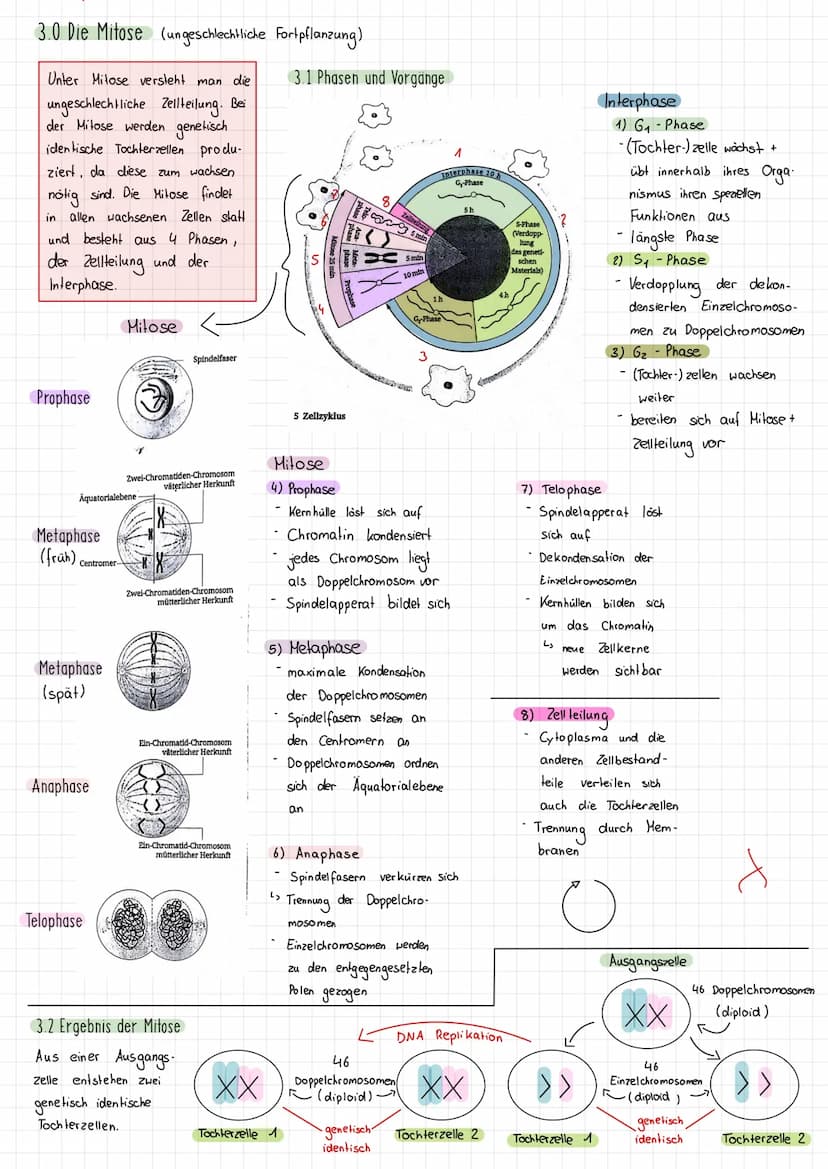 3.0 Die Mitose (ungeschlechtliche Fortpflanzung)
Unter Mitose versteht man die
ungeschlechtliche Zellteilung. Bei
der Mitose werden genetisch
identische Tochterzellen produ-
ziert, da diese zum wachsen
nötig sind. Die Mitose findet
in allen wachsenen Zellen statt
und besteht aus 4 Phasen,
der Zellteilung und der
Interphase.
3.1 Phasen und Vorgänge
1
2
3
4
5
6
7
8
Interphase 10 h
G₁-Phase
5 h
S-Phase
(Verdopp-
lung
des geneti-
schen
Materials)
4 h
1 h
G₂-Phase
Zellteilung
5 min
Telo-
phase
Ana-
phase
Meta-
phase
5 min
10 min
Prophase
Mitose 25 min
5 Zellzyklus
Interphase
1) G₁ - Phase
- (Tochter-) zelle wächst +
übt innerhalb ihres Orga-
nismus ihren speziellen
Funktionen aus
- längste Phase
2) S₁ - Phase
- Verdopplung der dekon-
densierten Einzelchromoso-
men zu Doppelchromosomen
3) G₂ - Phase
- (Tochter-) zellen wachsen
weiter
- bereiten sich auf Mitose +
Zellteilung vor
Mitose
Prophase
Spindelfaser
Metaphase
(früh)
Zwei-Chromatiden-Chromosom
väterlicher Herkunft
Äquatorialebene
Centromer
Zwei-Chromatiden-Chromosom
mütterlicher Herkunft
Metaphase
(spät)
Anaphase
Ein-Chromatid-Chromosom
väterlicher Herkunft
Ein-Chromatid-Chromosom
mütterlicher Herkunft
Telophase
Mitose
4) Prophase
- Kernhülle löst sich auf
- Chromatin kondensiert
- jedes Chromosom liegt
als Doppelchromosom vor
- Spindelapparat bildet sich
5) Metaphase
- maximale Kondensation
der Doppelchromosomen
- Spindelfasern setzen an
den Centromern an
- Doppelchromosomen ordnen
sich der Äquatorialebene
an
6) Anaphase
- Spindelfasern verkürzen sich
↳ Trennung der Doppelchro-
mosomen
- Einzelchromosomen werden
zu den entgegengesetzten
Polen gezogen
7) Telophase
- Spindelapparat löst
sich auf
- Dekondensation der
Einzelchromosomen
- Kernhüllen bilden sich
um das Chromatin
↳ neue Zellkerne
werden sichtbar
8) Zellteilung
- Cytoplasma und die
anderen Zellbestand-
teile verteilen sich
auch die Tochterzellen
- Trennung durch Mem-
branen
3.2 Ergebnis der Mitose
Aus einer Ausgangs-
zelle entstehen zwei
genetisch identische
Tochterzellen.
Ausgangszelle
46 Doppelchromosomen
(diploid)
DNA Replikation
46
Doppelchromosomen
(diploid)
46
Einzelchromosomen
(diploid)
genetisch
identisch
genetisch
identisch
Tochterzelle 1
Tochterzelle 2
Tochterzelle 1
Tochterzelle 2